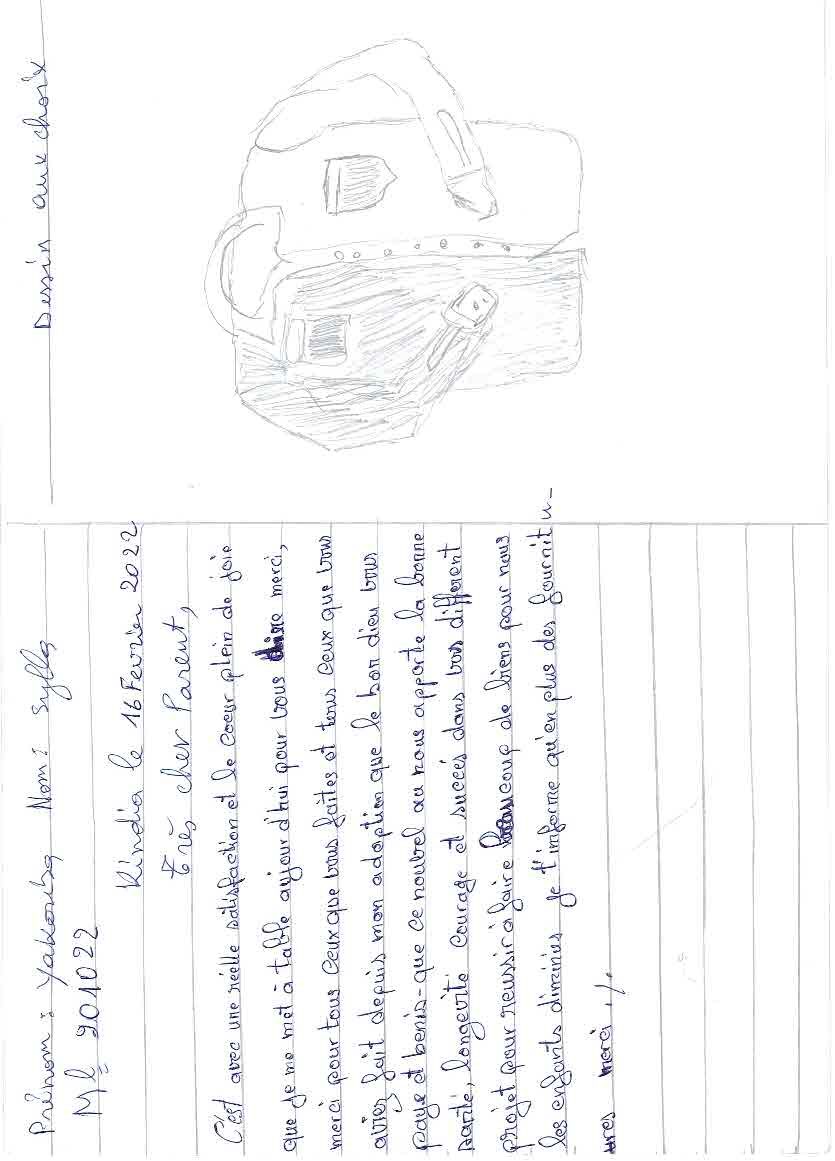 Prénom : Yakouba Nom : Sylla
Ml 901022
Kindia le 16 Fevrier 2022
très cher Parent,
C'est avec une réelle satisfaction et le coeur plein de joie
que je me met à table aujourd'hui pour vous dire merci,
merci pour tous ceux que vous faites et tous ceux que vous
aviez fait depuis mon adoption que le bon dieu vous
paye et benis - que ce nouvel au nous apporte la bonne
santé, longevité courage et succès dans vos différent
projet pour reussir à faire beaucoup de biens pour nous
les enfants diminus je t'informe qu'en plus des fournitu-
ures merci ./.
Dessin aux choix